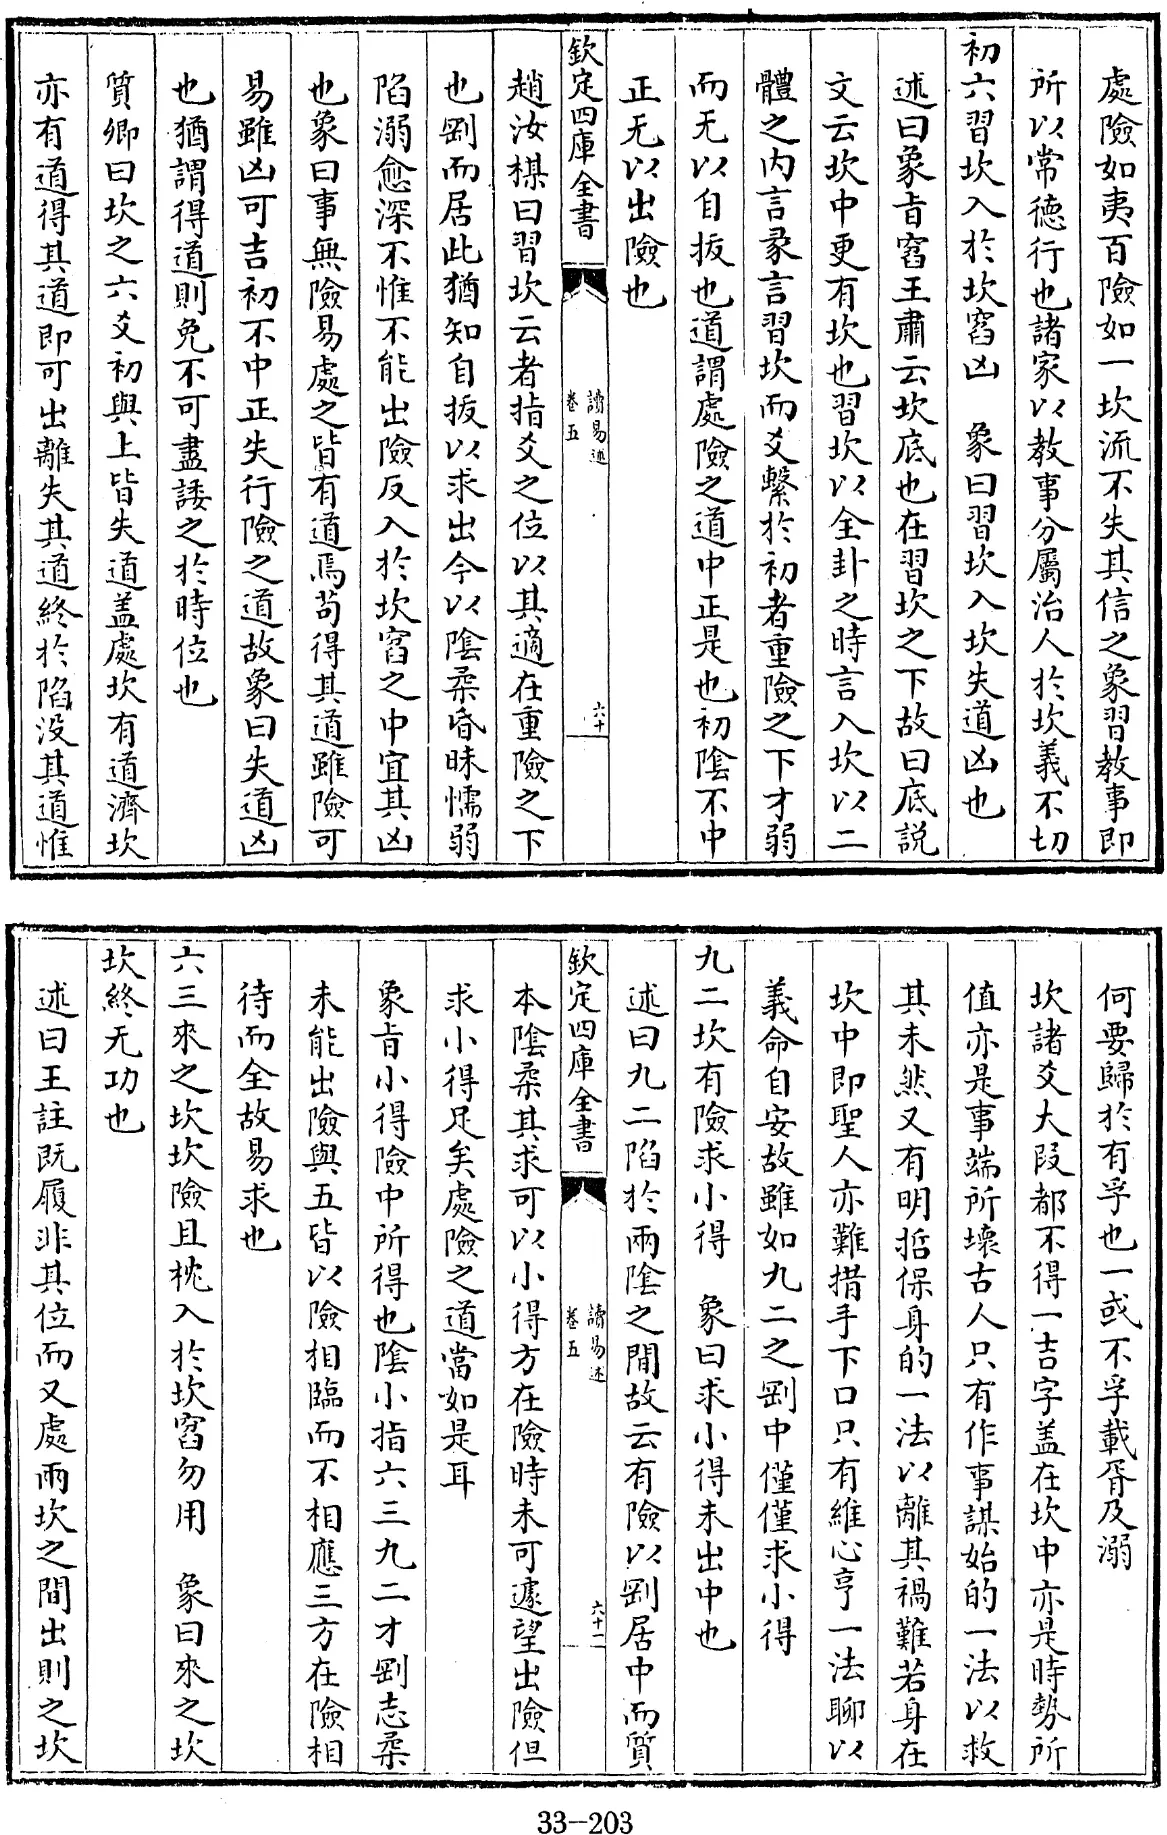 處險如夷百險如一坎流不失其信之象習教事即
所以常德行也諸家以教事分屬治人於坎義不切
初六習坎入於坎窞凶　象曰習坎入坎失道凶也
述曰象旨窞王肅云坎底也在習坎之下故曰底説
文云坎中更有坎也習坎以全卦之時言入坎以二
體之内言彖言習坎而爻繫於初者重險之下才弱
而无以自拔也道謂處險之道中正是也初陰不中
正无以出險也
欽定四庫全書
讀易述
卷五
六十
趙汝楳曰習坎云者指爻之位以其適在重險之下
也剛而居此猶知自拔以求出今以陰柔昏昧懦弱
陷溺愈深不惟不能出險反入於坎窞之中宜其凶
也象曰事無險易處之皆有道焉苟得其道雖險可
易雖凶可吉初不中正失行險之道故象曰失道凶
也猶謂得道則免不可盡諉之於時位也
質卿曰坎之六爻初與上皆失道盖處坎有道濟坎
亦有道得其道即可出離失其道終於陷没其道惟
何要歸於有孚也一或不孚載胥及溺
坎諸爻大段都不得一吉字盖在坎中亦是時勢所
值亦是事端所壞古人只有作事謀始的一法以救
其未然又有明哲保身的一法以離其禍難若身在
坎中即聖人亦難措手下口只有維心亨一法聊以
義命自安故雖如九二之剛中僅僅求小得
九二坎有險求小得　象曰求小得未出中也
述曰九二陷於兩陰之間故云有險以剛居中而質
欽定四庫全書
讀易述
卷五
六十一
本陰柔其求可以小得方在險時未可遽望出險但
求小得足矣處險之道當如是耳
象旨小得險中所得也陰小指六三九二才剛志柔
未能出險與五皆以險相臨而不相應三方在險相
待而全故易求也
六三來之坎坎險且枕入於坎窞勿用　象曰來之坎
坎終无功也
述曰王註既履非其位而又處兩坎之間出則之坎
33-203